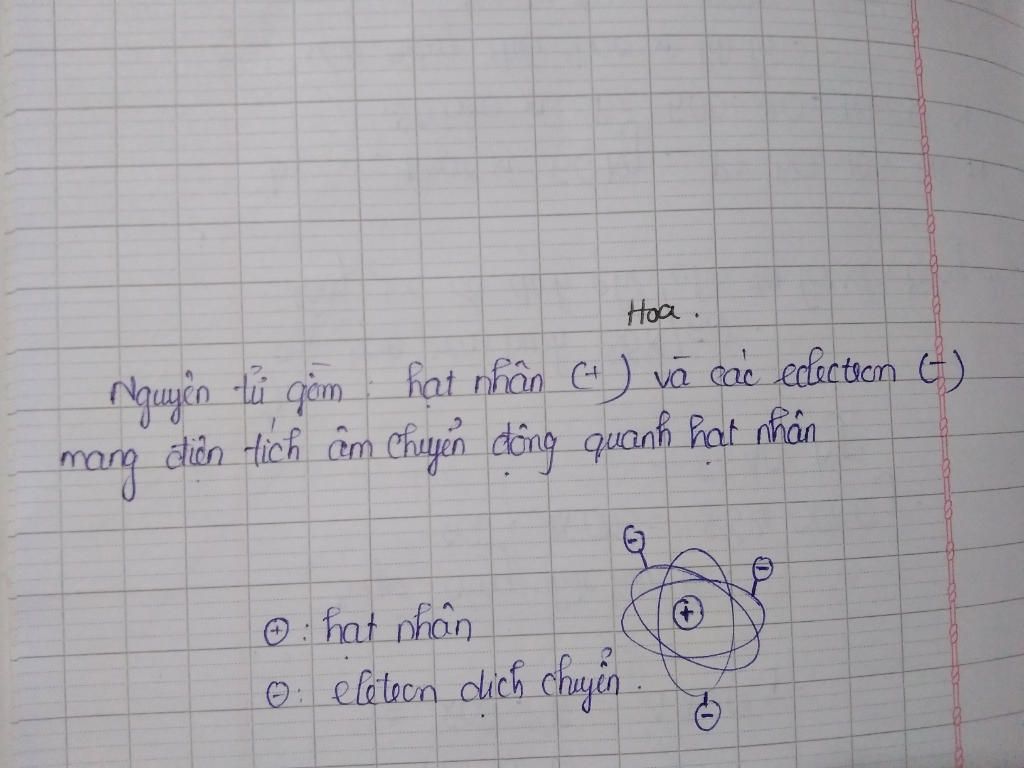 Hoa.
Nguyên tử gồm: hạt nhân (+) và các eclectron (-)
mang điện tích âm chuyển động quanh hạt nhân
⊕: hạt nhân
⊖: elêtecn dịch chuyển.
⊖
⊖
⊕
⊖